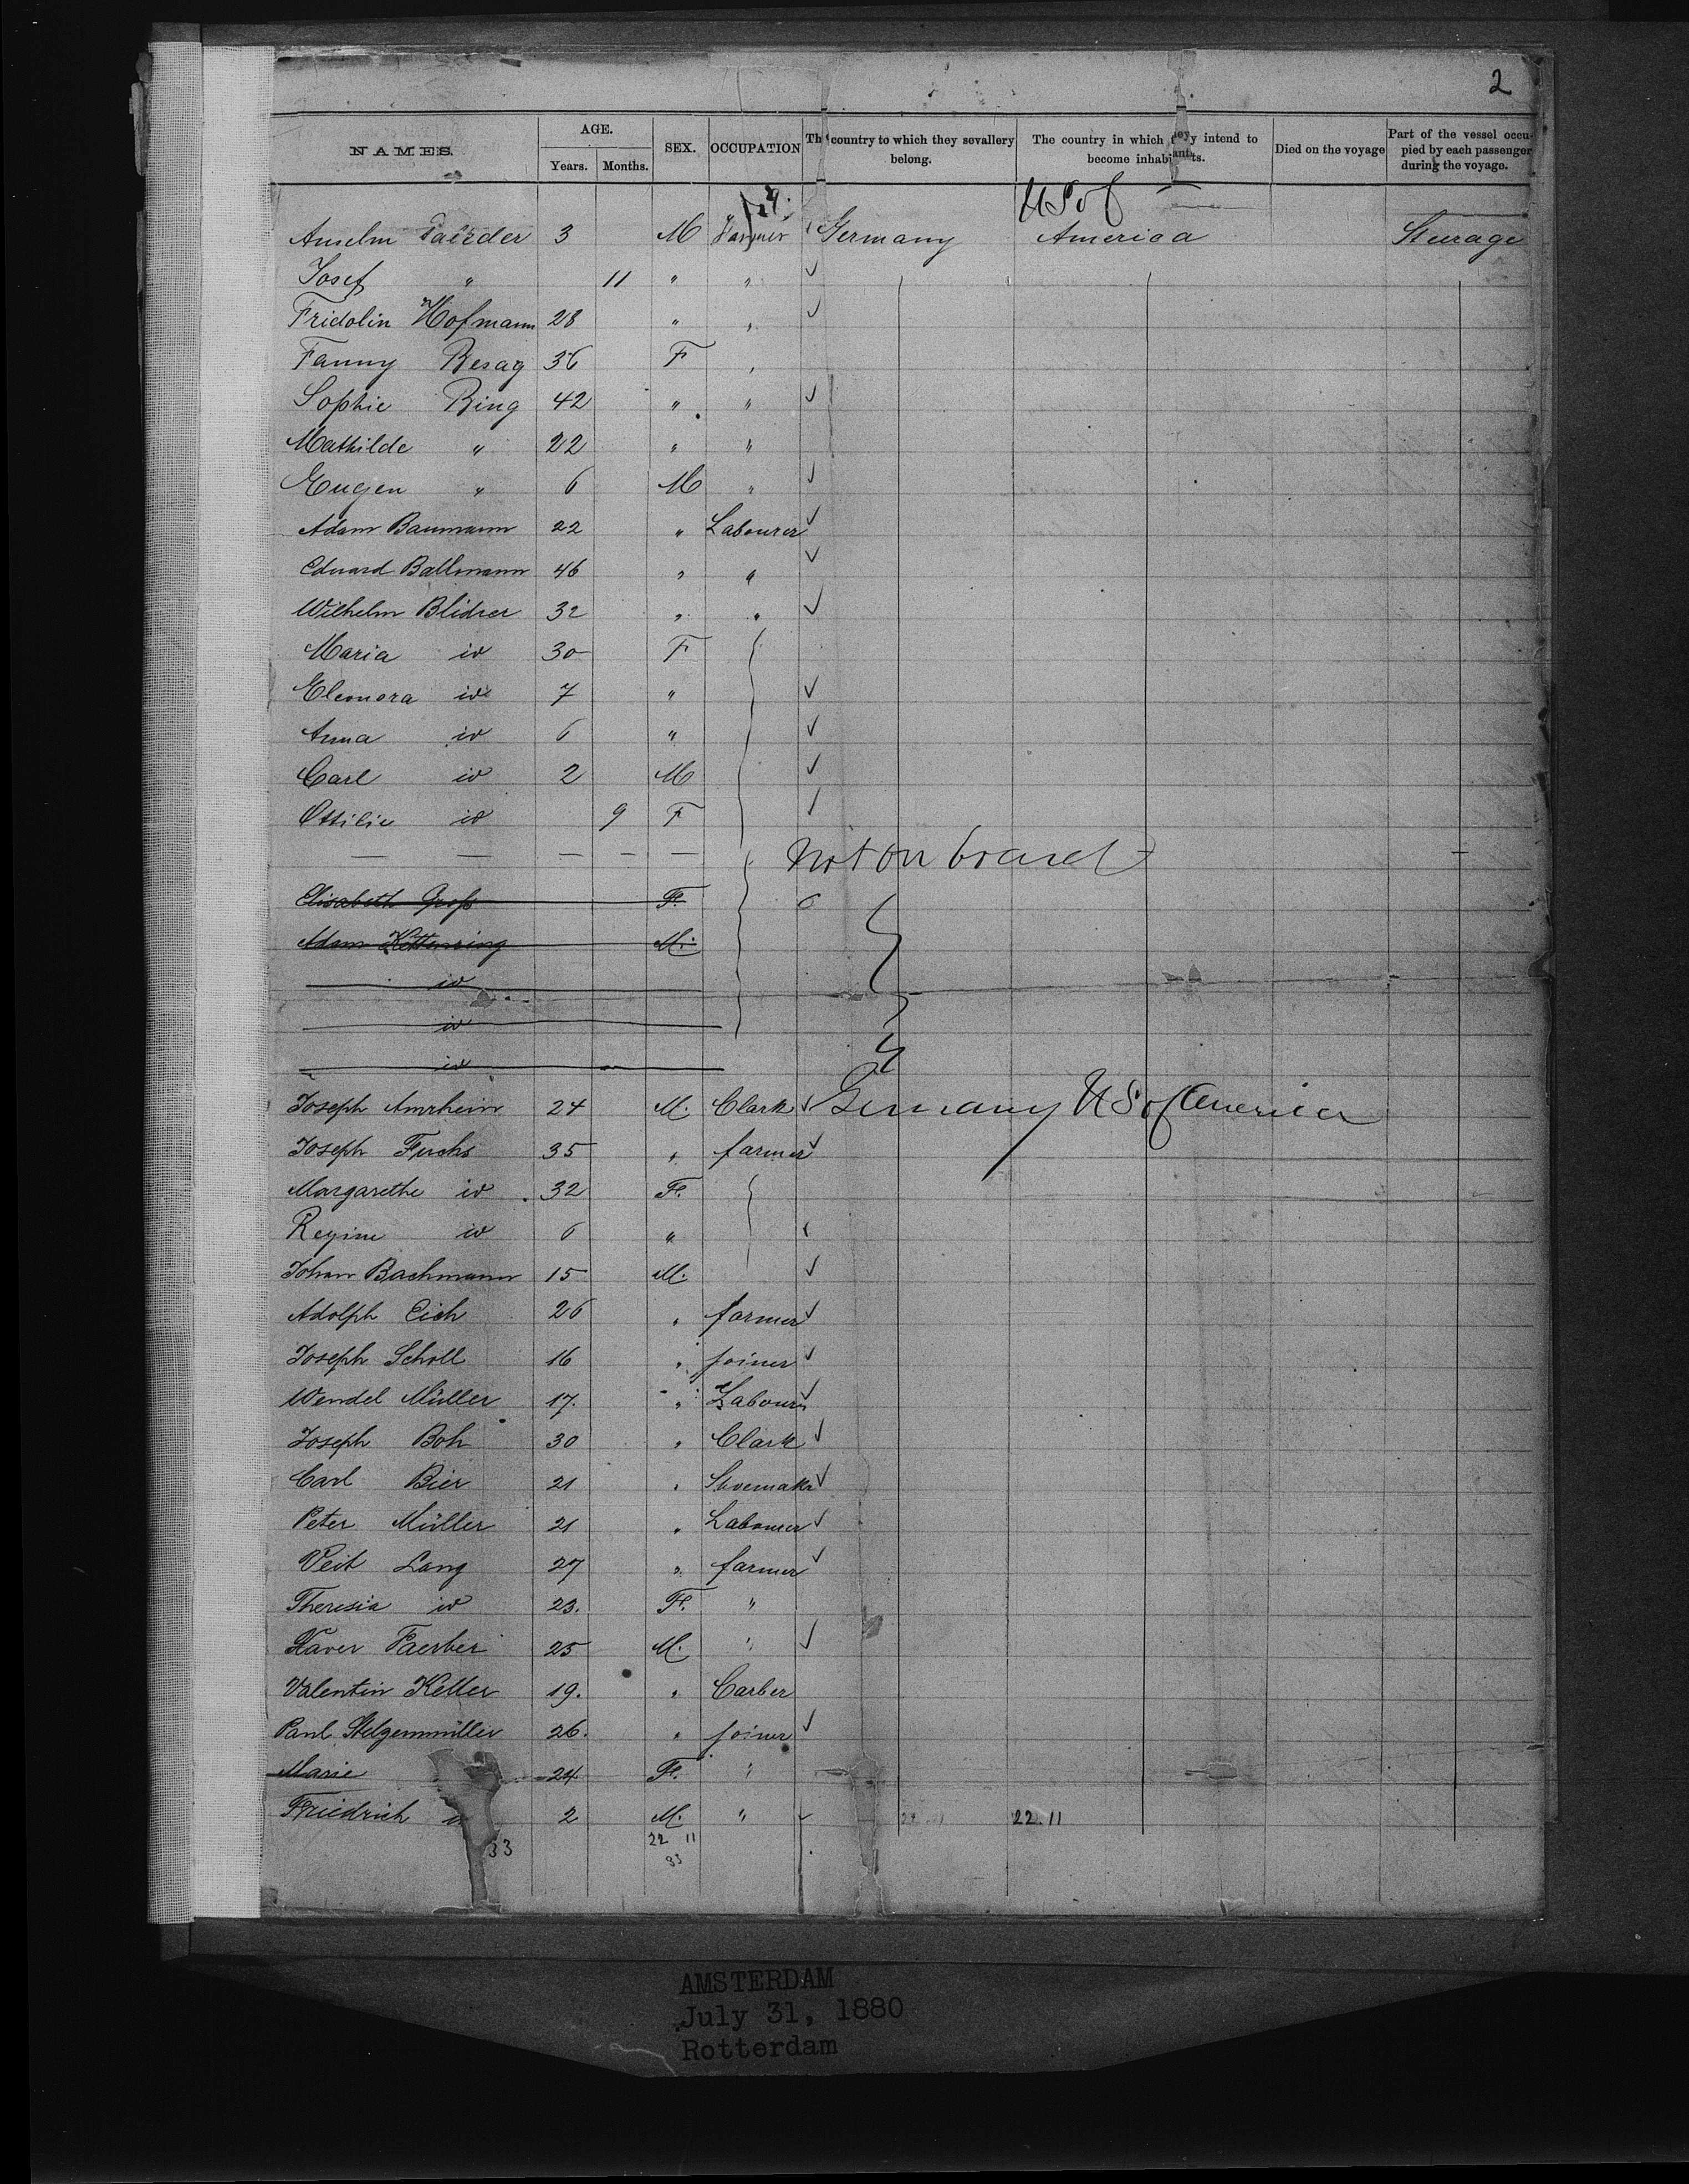 2
NAMES. AGE. Years. Months. SEX. OCCUPATION The country to which they sevallery belong. The country in which they intend to become inhabitants. Died on the voyage Part of the vessel occupied by each passenger during the voyage.
U S of
Anselm 3 M Farmer Germany America Steerage
Josef " 11 " "
Fridolin Hofmann 28 " "
Fanny Besag 36 F "
Sophie Ring 42 " "
Mathilde " 22 " "
Eugen " 6 M "
Adam Baumann 22 " Labourer
Eduard Ballmann 46 " "
Wilhelm 32 " "
Maria id 30 F
Eleonora id 7 "
Anna id 6 "
Carl id 2 M
Ottilie id 9 F
— — — — — Not on board —
Elisabeth Groß F.
Adam M.
id
id
id
Joseph Amrhein 24 M. Clark Germany U S of America
Joseph Fuchs 35 " farmer
Margarethe id 32 F.
Regine id 6 "
Johan Bachmann 15 M.
Adolph Eich 26 " farmer
Joseph Scholl 16 " joiner
Wendel Müller 17. " Labourer
Joseph Boh 30 " Clark
Carl Bier 21 " Shoemakr
Peter Müller 21 " Labourer
Veit Lang 27 " farmer
Theresia id 23. F. "
Xaver Faerber 25 M. "
Valentin Keller 19. " Carber
Paul Stelzenmüller 26. " joiner
Marie 24 F. "
Friedrich 2 M. " 22.11 22.11
33 22 11
33
AMSTERDAM
July 31, 1880
Rotterdam